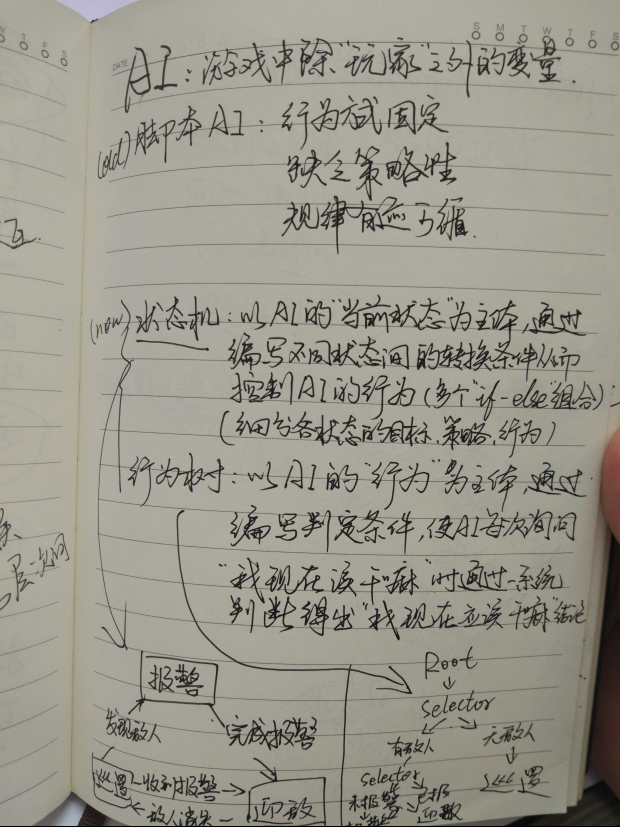 S M T W T F S
DATE
AI：游戏中除“玩家”之外的变量.
(old) 脚本AI：行为方式固定
缺乏策略性
规律
(new) 状态机：以AI的“当前状态”为主体，通过
编写不同状态间的转换条件从而
控制AI的行为（多个“if-else”组合）
（细分各状态的目标、策略、行为）
行为树：以AI的“行为”为主体，通过
编写判定条件，使AI每次询问
“我现在该干嘛”时通过一系统
判断得出“我现在应该干嘛”结论
报警
发现敌人
完成报警
收到报警
敌人消失
Root
selector
有敌人
无敌人
selector
未报警
已报